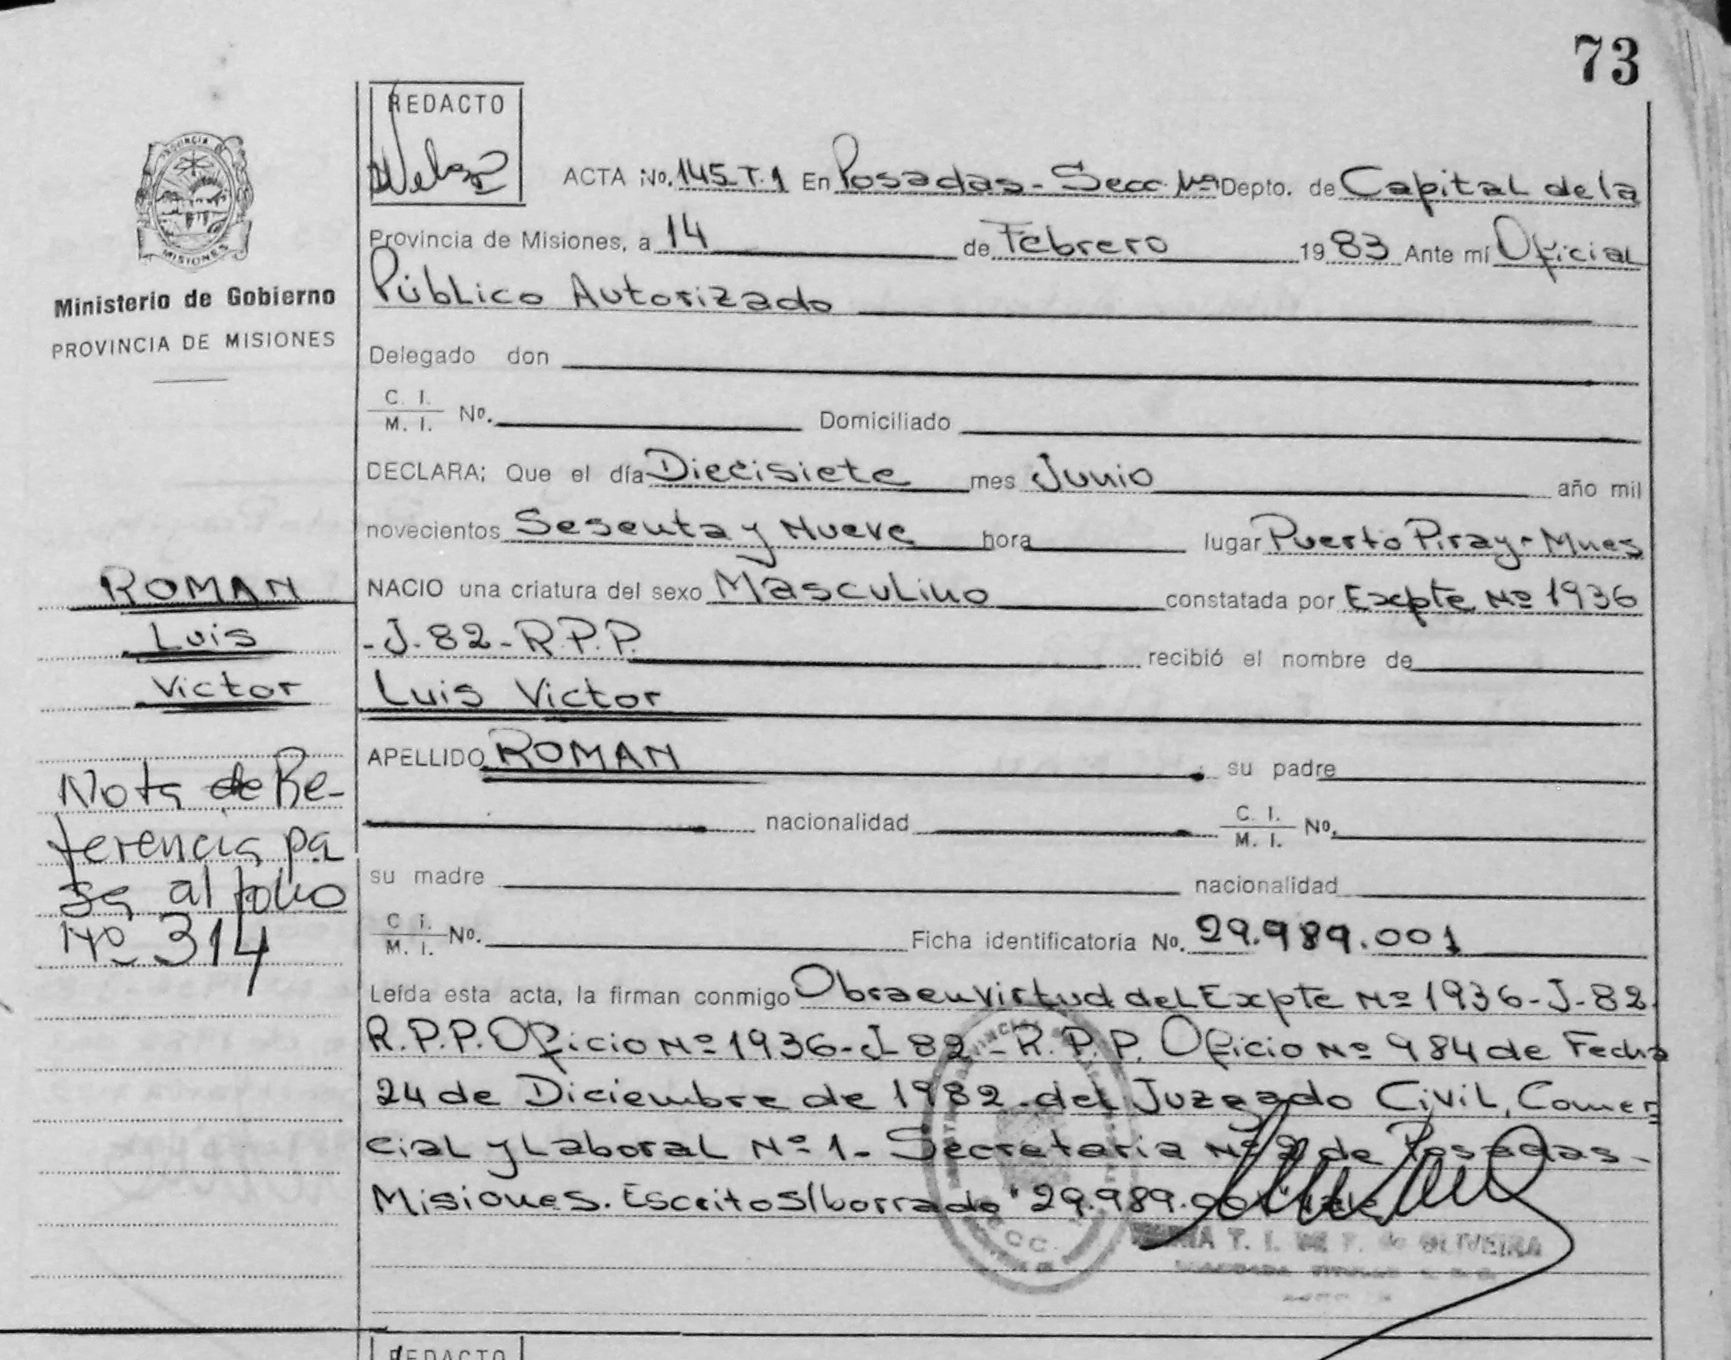 73
REDACTO
PROVINCIA DE
MISIONES
Ministerio de Gobierno
PROVINCIA DE MISIONES
ACTA No. 145 T.1 En Posadas - Secc. 1ra Depto. de Capital de la
Provincia de Misiones, a 14 de Febrero 1983 Ante mí Oficial
Público Autorizado
Delegado don
C. I.
M. I. No. Domiciliado
DECLARA; Que el día Diecisiete mes Junio año mil
novecientos Sesenta y Nueve hora lugar Puerto Piray - Mnes
NACIO una criatura del sexo Masculino constatada por Expte Nº 1936
-J-82-R.P.P. recibió el nombre de
Luis Victor
APELLIDO ROMAN su padre
nacionalidad C. I.
M. I. No.
su madre nacionalidad
C. I.
M. I. No. Ficha identificatoria No. 29.989.001
Leída esta acta, la firman conmigo Obra en virtud del Expte Nº 1936-J-82.
R.P.P. Oficio Nº 1936-J-82-R.P.P. Oficio Nº 984 de Fecha
24 de Diciembre de 1982 del Juzgado Civil, Comer
cial y Laboral Nº 1- Secretaria Nº 2 de Posadas-
Misiones. Escrito S/borrado "29.989.001" vale
T. I. DE F. de OLIVEIRA
ROMAN
Luis
Victor
Nota de Re-
ferencia pa
sa al folio
Nº 314
REDACTO